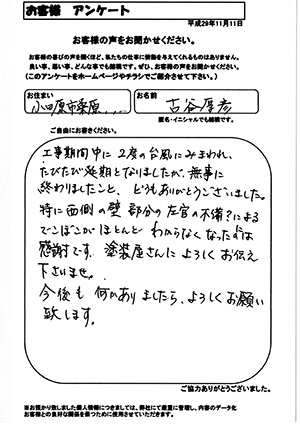 お客様 アンケート
平成29年11月11日
お客様の声をお聞かせください。
お客様の喜びの声を聞くほど、私たちの仕事に情熱を与えてくれるものはありません。
良い事、悪い事、どんな事でも結構です。ぜひ、お客様の声をお聞かせください。
(このアンケートをホームページやチラシでご紹介させて下さい。)
お住まい
小田原市栗原....
お名前
古谷厚志
匿名・イニシャルでも結構です。
ご自由にお書きください。
工事期間中に2度の台風にみまわれ、
たびたび延期となりましたが、無事に
終わりましたこと、どうもありがとうございました。
特に西側の壁部分の左官の不備?による
でこぼこがほとんどわからなくなったのは
感謝です。塗装屋さんによろしくお伝え
下さいませ。
今後も何かありましたら、よろしくお願い
致します。
ご協力ありがとうございました。
※お預かり致しました個人情報につきましては、弊社にて厳重に管理し、内容のデータ化
お客様との良好な関係を保つために使用させていただきます。